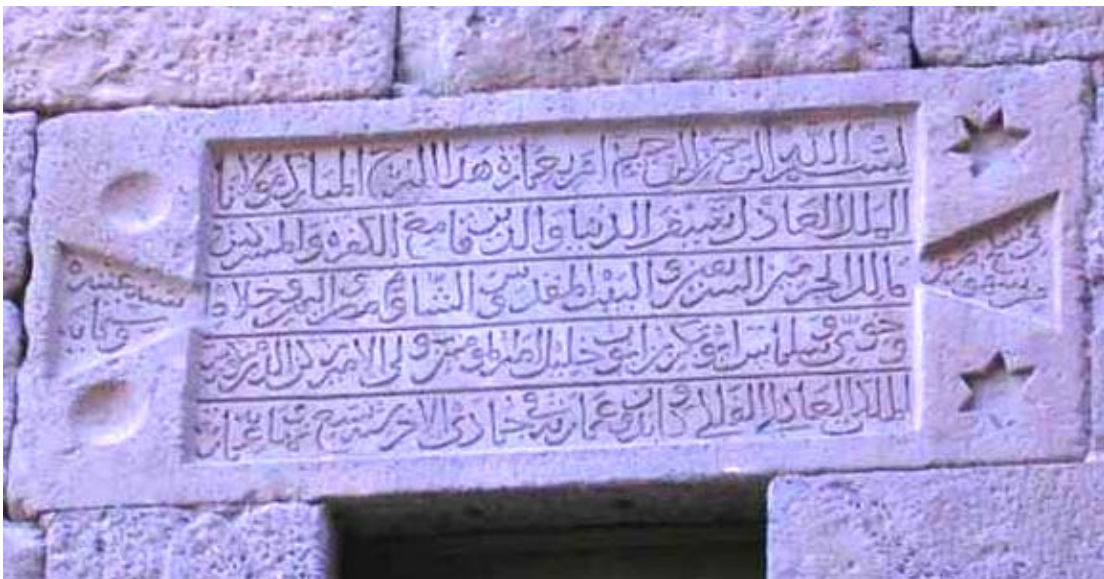 بسم الله الرحمن الرحيم امر بعمارة هذا البرج المبارك مولانا
الملك العادل سيف الدنيا والدين قامع الكفرة والمشركين
مالك الحرمين الشريفين والبيت المقدس والشام ومصر واليمن وخلاط
وخوي وسلماس ابو بكر بن ايوب خليل امير المؤمنين وولي الامير ركن الدين
الملكي العادلي عمارته في جمادى الاخر سنة تسع عمارته
في سلخ صفر
من شهور
سنة عشرة
وستماية